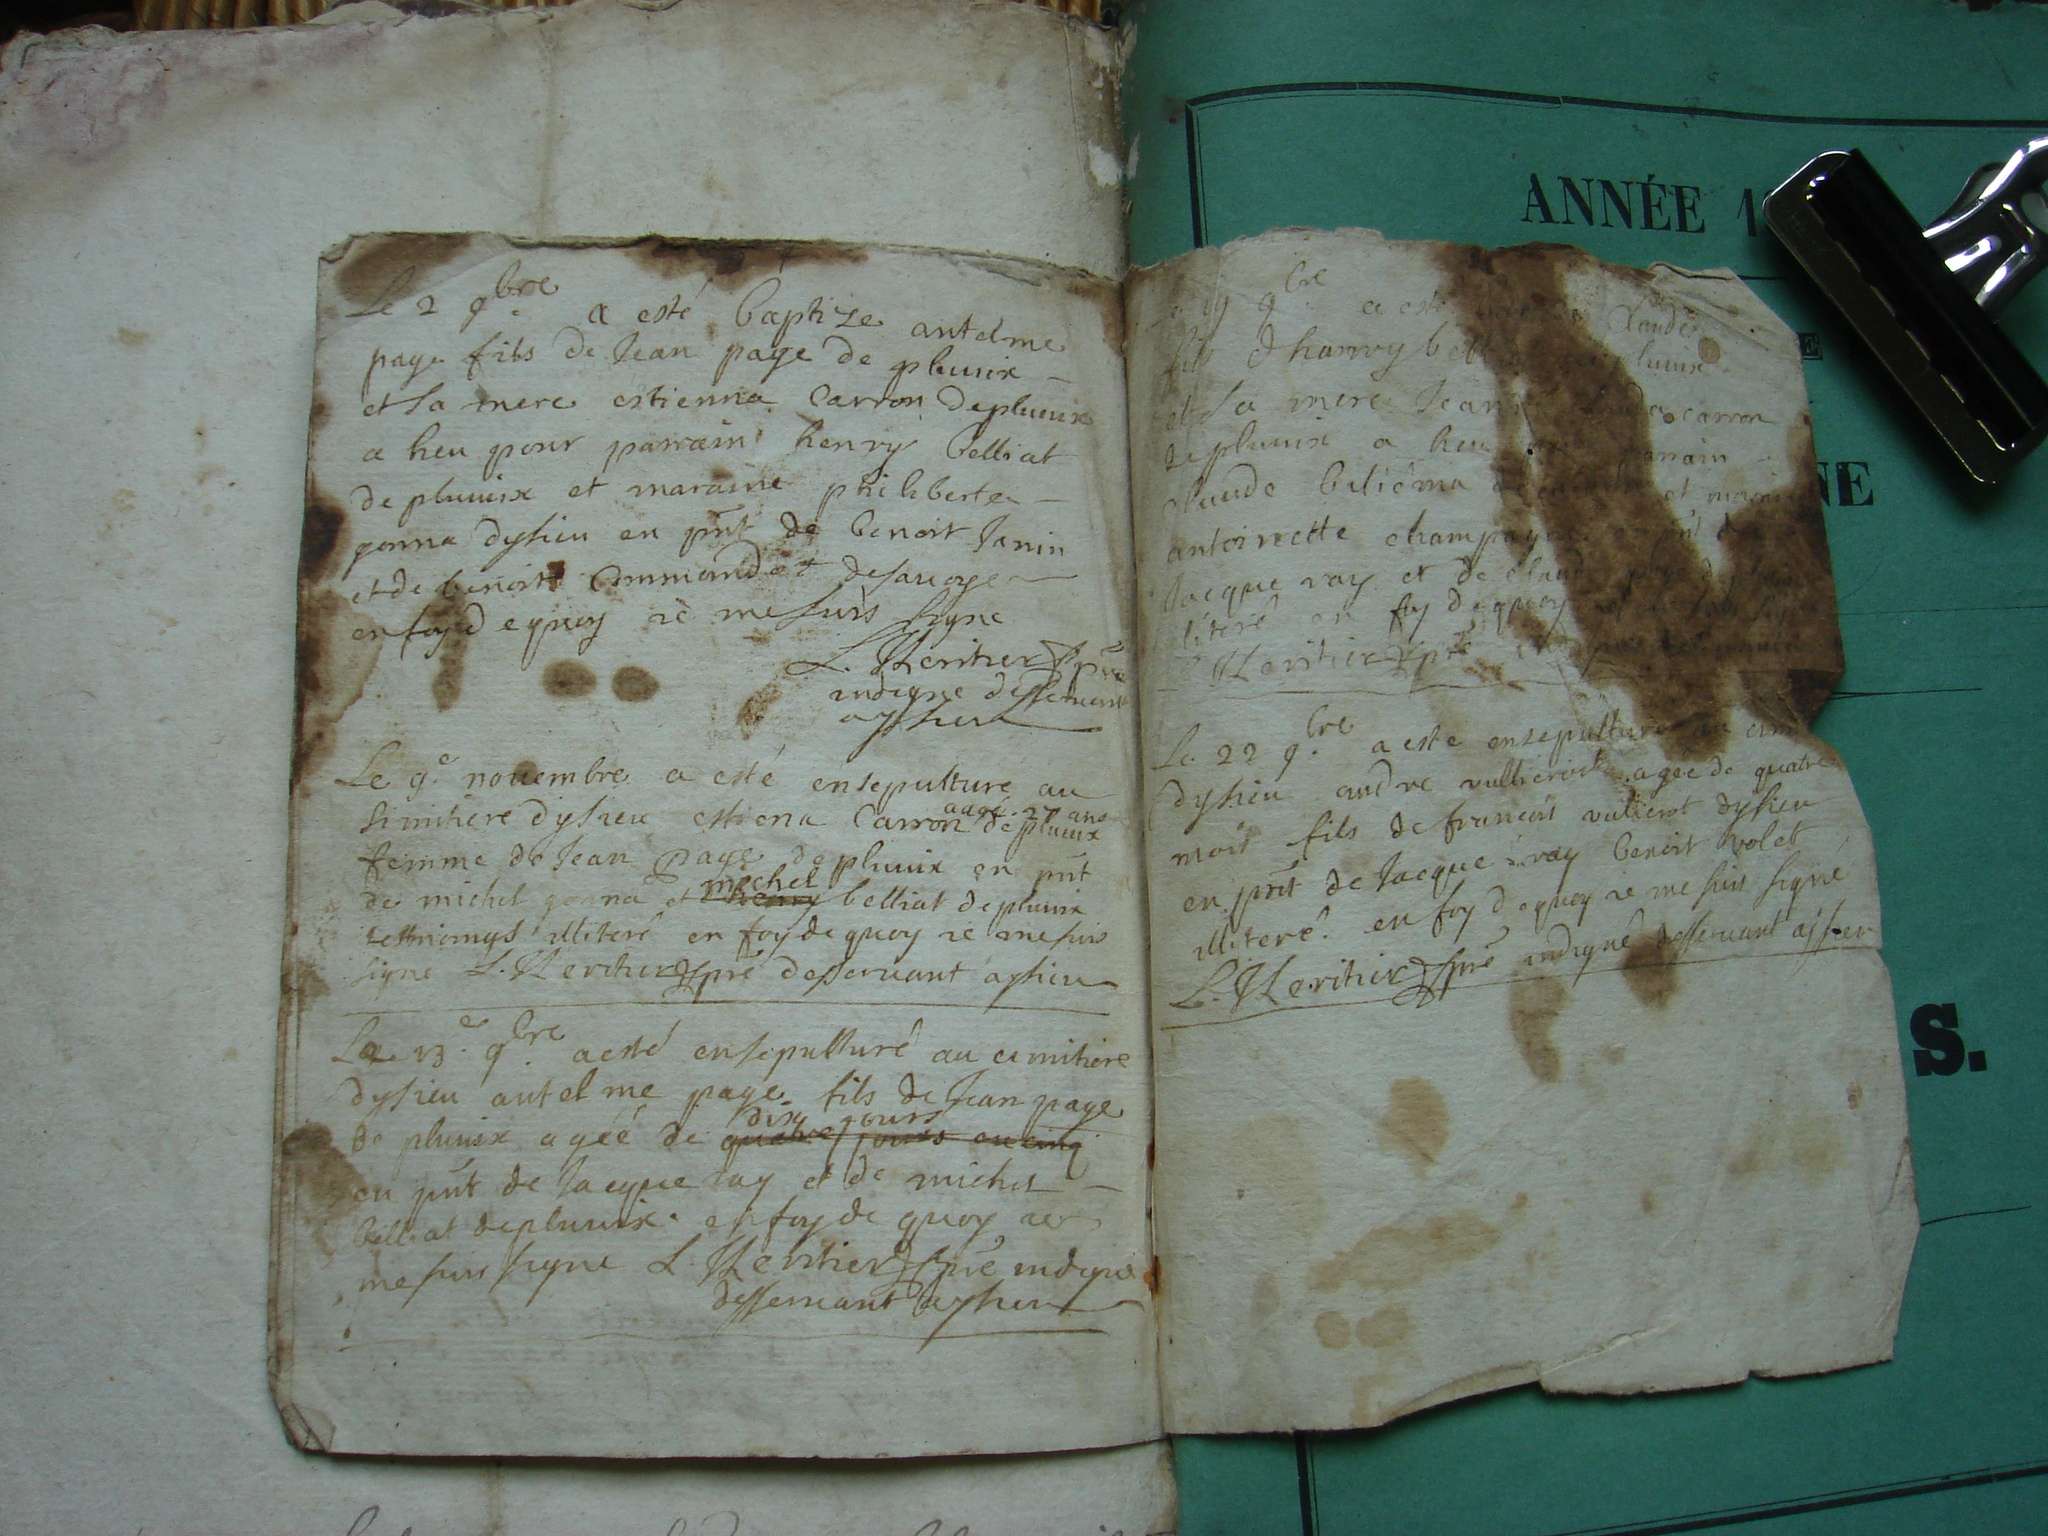 Le 2 9bre a esté baptize antelme
page fils de Jean page de pluuix
et la mere estienna Carron de pluuix
a heu pour parrain henry belliat
de pluuix et maraine philiberte
gonna dysieu en pnt de benoit Janin
et de benoit Commandot de sauoye
en foy de quoy ie me suis signe
L. Heritier pre
indigne desseruant
a ysieu
Le 9e nouembre a esté ensepulture au
simitiere dysieu estiena Carron de pluuix
aagé 27 ans
femme de Jean page de pluuix en pnt
de michel gonna et henry michel belliat de pluuix
tesmoings illiteré en foy de quoy ie me suis
signe L. Heritier pre desseruant a ysieu
Le 13e 9bre a esté ensepulturé au cimitiere
dysieu antelme page fils de Jean page
de pluuix agéé de quatre jours ou cinq
dix jours
en pnt de Jacque ray et de michel
belliat de pluuix en foy de quoy ie
me suis signe L. Heritier pre indigne
desseruant a ysieu
ANNÉE 1
19 9bre a esté Claude
fils d hanry pluuix
et la mere Jean carron
de pluuix a heu parrain
Claude et
antoinette champagne
Jacque ray et de claude
en foy de quoy
L. Heritier pre
Le 22 9bre a este ensepulture au
dysieu andre agee de quatre
mois fils de francois dysieu
en pnt de Jacque ray benoit volet
illiteré en foy de quoy ie me suis signé
L. Heritier pre indigne desseruant a ysieu
E
NE
S.